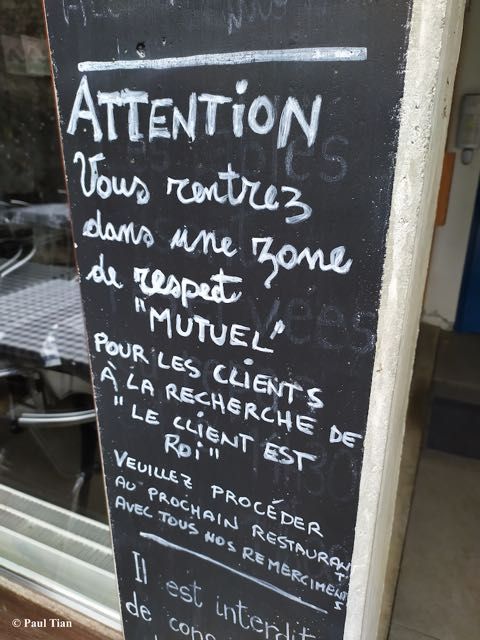 ATTENTION
Vous rentrez
dans une zone
de respect
"MUTUEL"
POUR LES CLIENTS
À LA RECHERCHE DE
"LE CLIENT EST
ROI"
VEUILLEZ PROCÉDER
AU PROCHAIN RESTAURANT
AVEC TOUS NOS REMERCIMENTS
Il est interdit
de
© Paul Tian